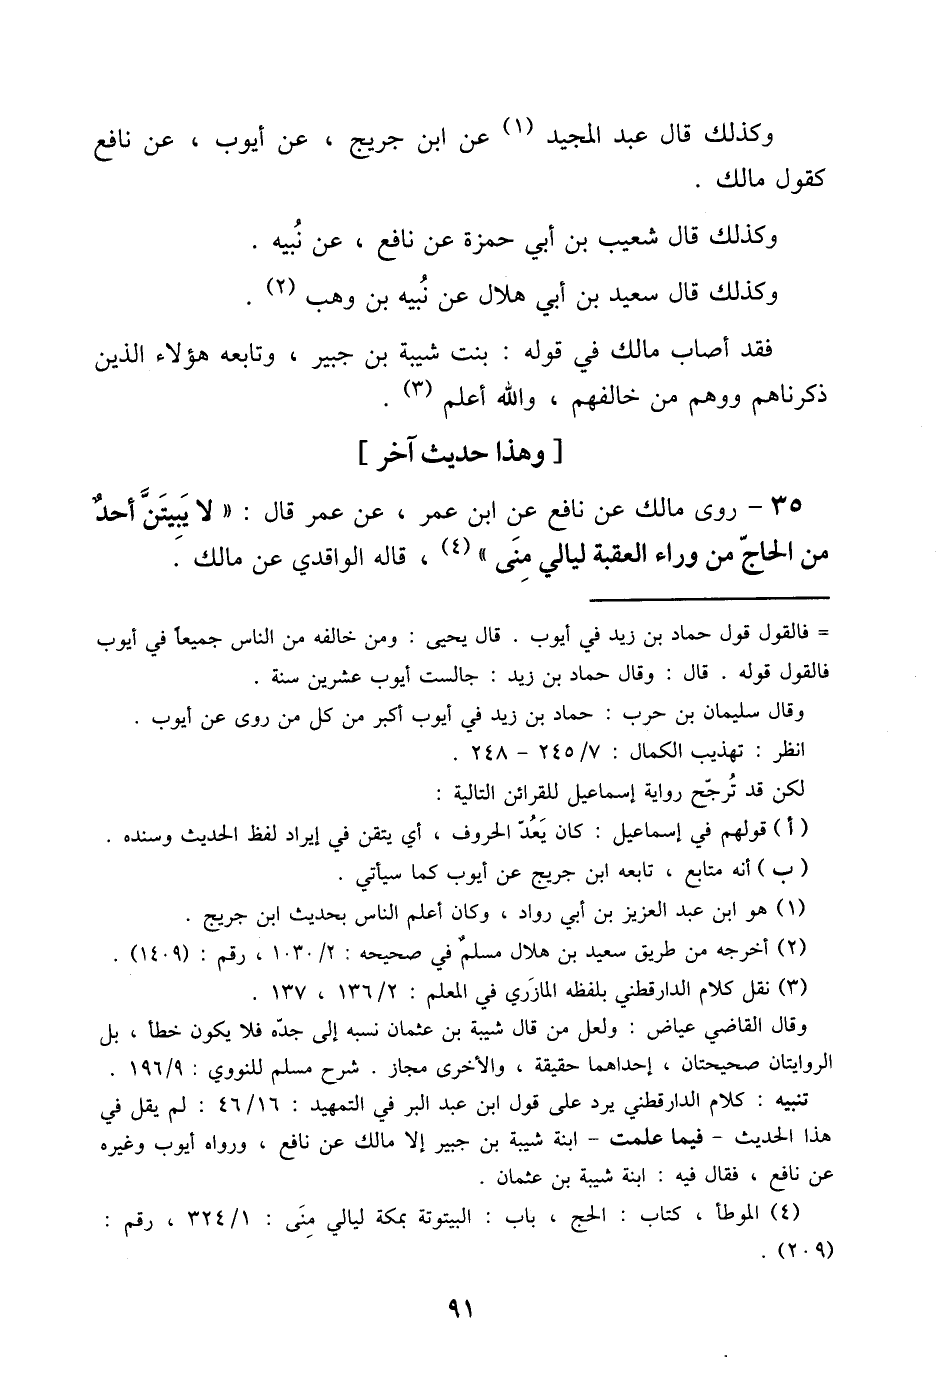 وكذلك قال عبد المجيد (١) عن ابن جريج ، عن أيوب ، عن نافع
كقول مالك .
وكذلك قال شعيب بن أبي حمزة عن نافع ، عن نُبيه .
وكذلك قال سعيد بن أبي هلال عن نُبيه بن وهب (٢) .
فقد أصاب مالك في قوله : بنت شيبة بن جبير ، وتابعه هؤلاء الذين
ذكرناهم ووهم من خالفهم ، والله أعلم (٣) .
[ وهذا حديث آخر ]
٣٥ - روى مالك عن نافع عن ابن عمر ، عن عمر قال : « لا يَبِيتَنَّ أحدٌ
من الحاجّ من وراء العقبة ليالي مِنَى » (٤) ، قاله الواقدي عن مالك .
= فالقول قول حماد بن زيد في أيوب . قال يحيى : ومن خالفه من الناس جميعاً في أيوب
فالقول قوله . قال : وقال حماد بن زيد : جالست أيوب عشرين سنة .
وقال سليمان بن حرب : حماد بن زيد في أيوب أكبر من كل من روى عن أيوب .
انظر : تهذيب الكمال : ٢٤٥/٧ - ٢٤٨ .
لكن قد تُرجّح رواية إسماعيل للقرائن التالية :
( أ ) قولهم في إسماعيل : كان يَعُدّ الحروف ، أي يتقن في إيراد لفظ الحديث وسنده .
( ب ) أنه متابع ، تابعه ابن جريج عن أيوب كما سيأتي .
(١) هو ابن عبد العزيز بن أبي رواد ، وكان أعلم الناس بحديث ابن جريج .
(٢) أخرجه من طريق سعيد بن هلال مسلمٌ في صحيحه : ١٠٣٠/٢ ، رقم : (١٤٠٩) .
(٣) نقل كلام الدارقطني بلفظه المازَري في المعلم : ١٣٦/٢ ، ١٣٧ .
وقال القاضي عياض : ولعل من قال شيبة بن عثمان نسبه إلى جدّه فلا يكون خطأ ، بل
الروايتان صحيحتان ، إحداهما حقيقة ، والأخرى مجاز . شرح مسلم للنووي : ١٩٦/٩ .
تنبيه : كلام الدارقطني يرد على قول ابن عبد البر في التمهيد : ٤٦/١٦ : لم يقل في
هذا الحديث - فيما علمت - ابنة شيبة بن جبير إلا مالك عن نافع ، ورواه أيوب وغيره
عن نافع ، فقال فيه : ابنة شيبة بن عثمان .
(٤) الموطأ ، كتاب : الحج ، باب : البيتوتة بمكة ليالي مِنَى : ٣٢٤/١ ، رقم :
(٢٠٩) .
٩١